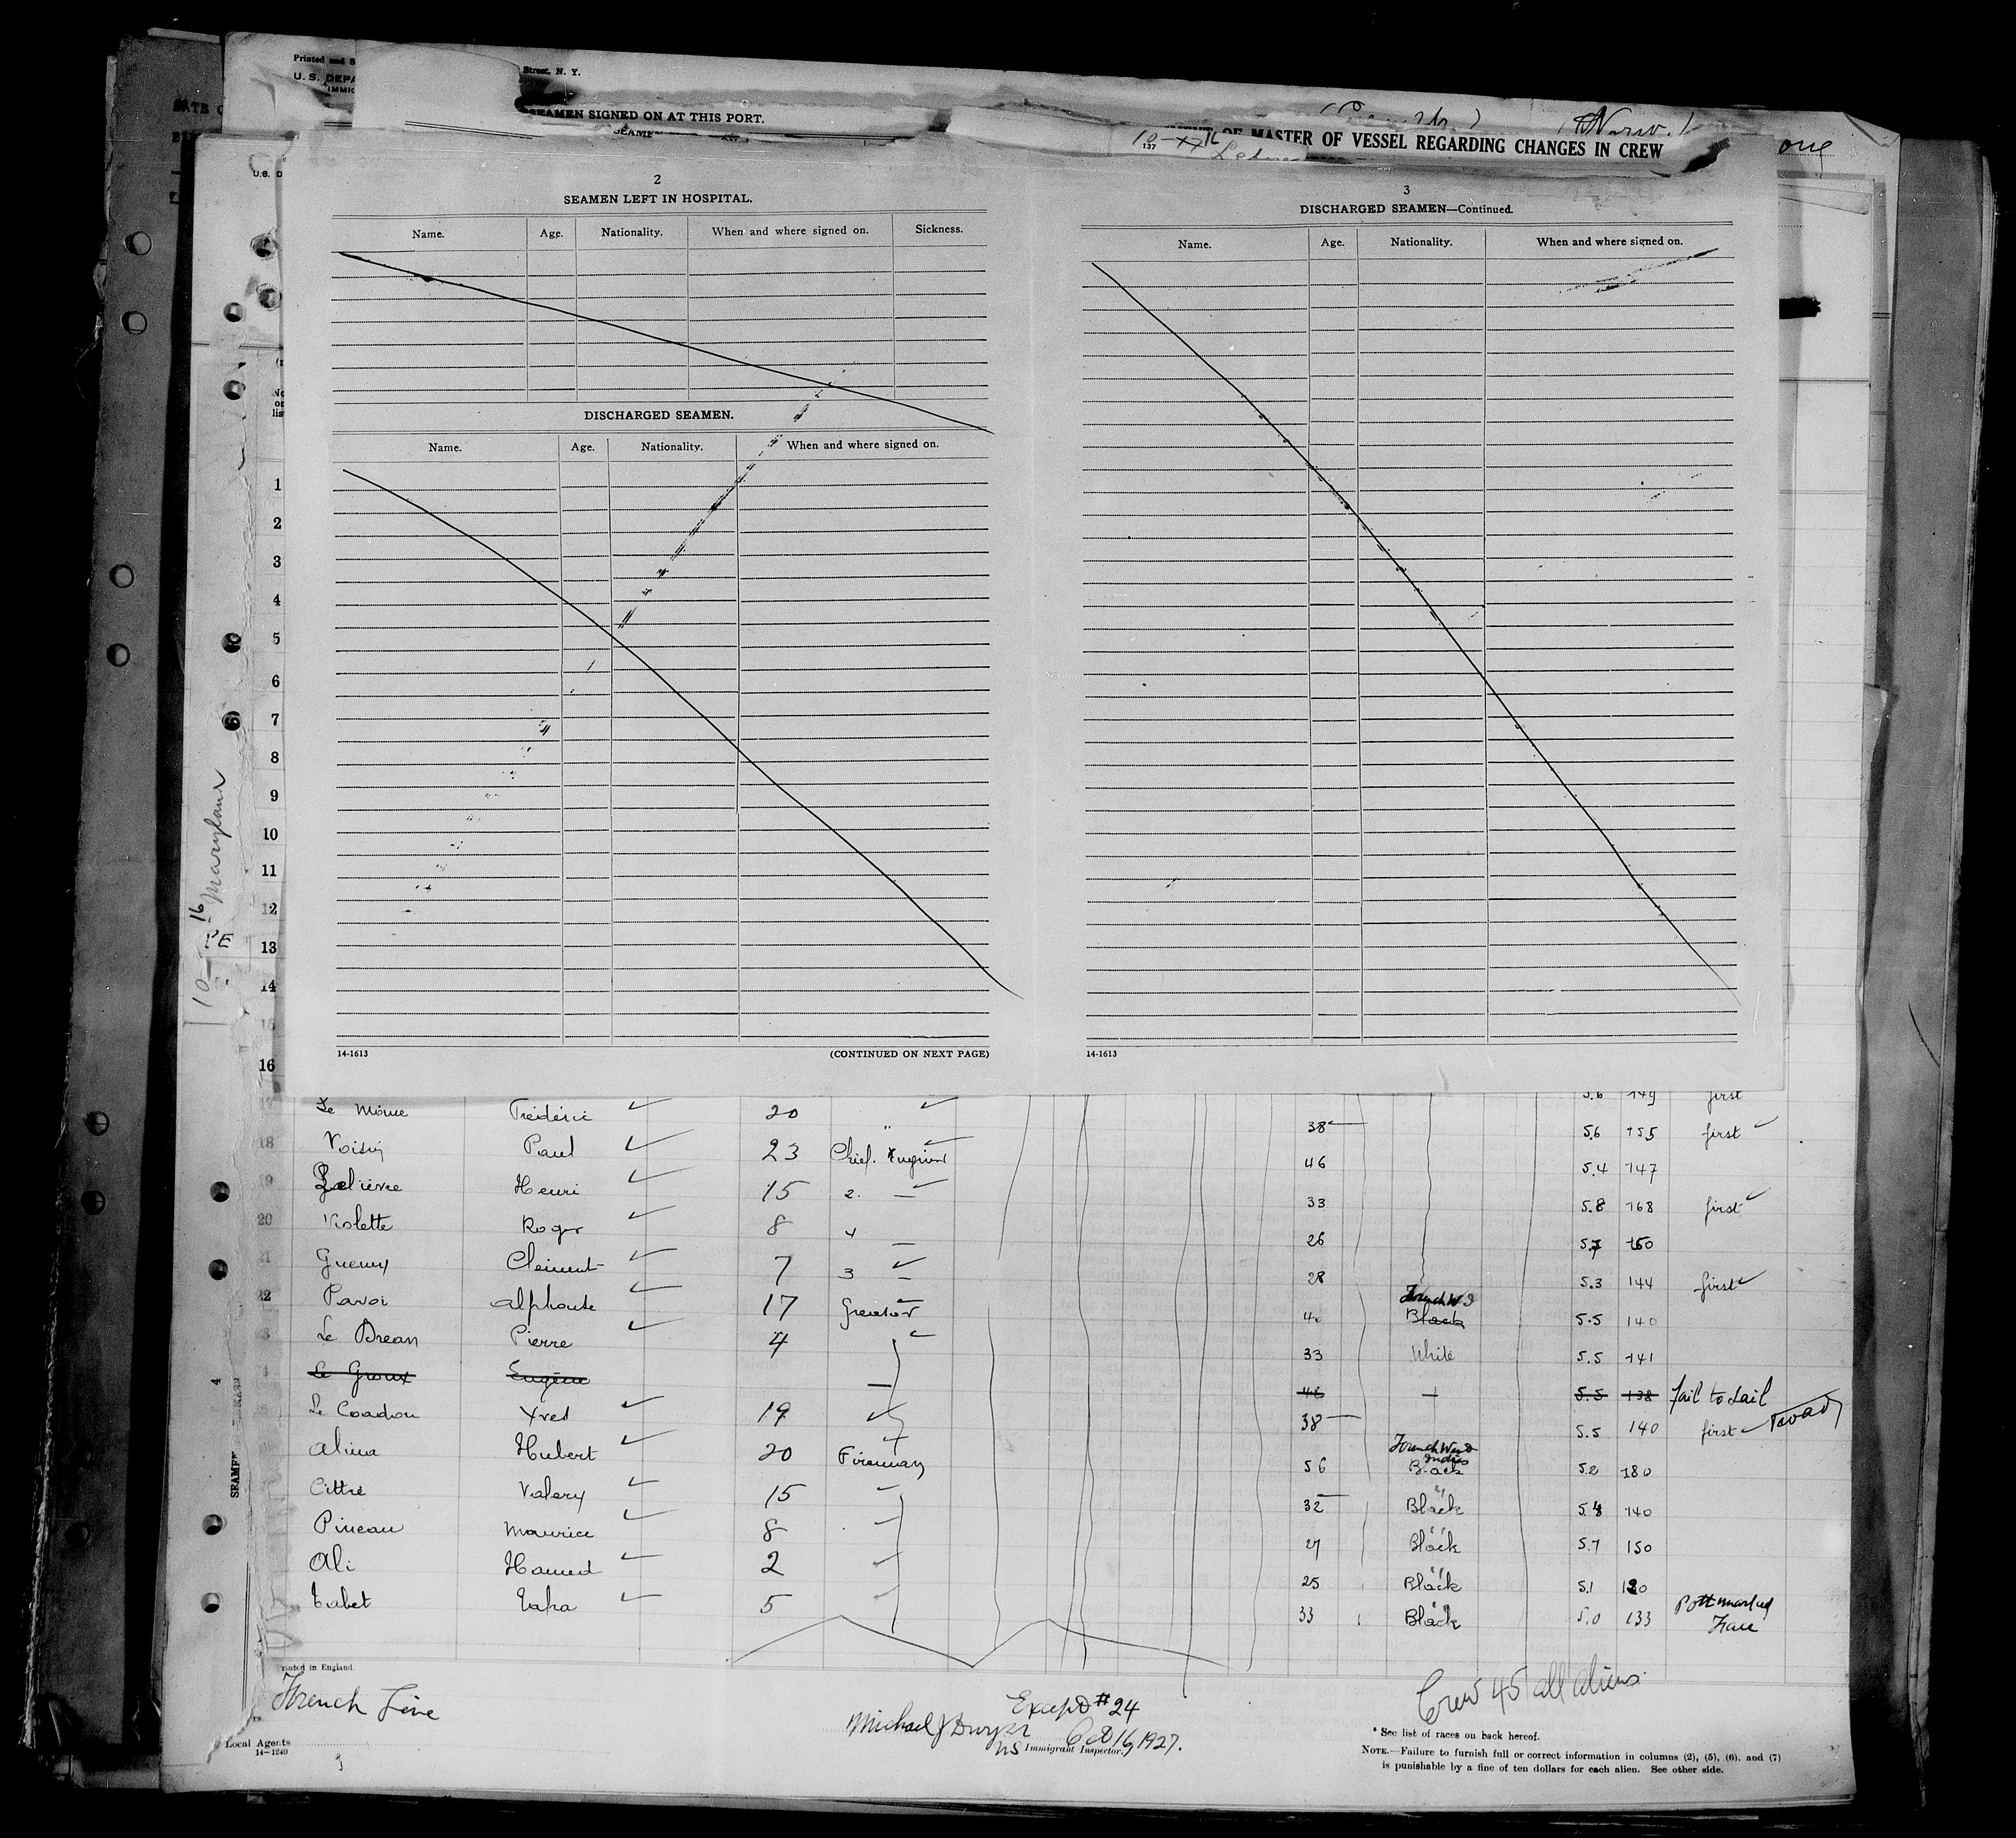 Printed and S
Street, N. Y.
U. S. DEPA
IMMIG
SEAMEN SIGNED ON AT THIS PORT.
OF MASTER OF VESSEL REGARDING CHANGES IN CREW
137
2
SEAMEN LEFT IN HOSPITAL.
Name. Age. Nationality. When and where signed on. Sickness.
DISCHARGED SEAMEN.
Name. Age. Nationality. When and where signed on.
14-1613 (CONTINUED ON NEXT PAGE)
3
DISCHARGED SEAMEN—Continued.
Name. Age. Nationality. When and where signed on.
14-1613
1
2
3
4
5
6
7
8
9
10
11
12
13
14
15
16
10-16 Maryland
5.6 149 first
Le Môme Fréderic 20 " 38 5.6 155 first
18 Voisin Paul 23 Chief. Engineer 46 5.4 147
19 Lelièvre Henri 15 2. — 33 5.8 168 first
20 Violette Roger 8 26 5.7 150
21 Guemy Clément 7 3 — 28 5.3 144 first
22 Pavoi Alphonse 17 Greaser 40 French W I Black 5.5 140
23 Le Drean Pierre 4 33 White 5.5 141
Le Groux Eugène — 48 5.5 138 fail to sail
Le Coadou Yves 19 38 5.5 140 first
Alina Hubert 20 Fireman 56 French West Indies Black 5.2 180
Cittré Valery 15 32 " Black 5.8 140
Pineau Maurice 8 27 " Black 5.7 150
Ali Hamed 2 25 " Black 5.1 120
Tabet Taha 5 33 " Black 5.0 133 Pott marked Face
Printed in England.
French Line
Local Agents
14-1240
Except #24
Michael J Dwyer Oct 16, 1927.
US Immigrant Inspector.
Crew 45 all aliens
* See list of races on back hereof.
NOTE.—Failure to furnish full or correct information in columns (2), (5), (6), and (7)
is punishable by a fine of ten dollars for each alien. See other side.